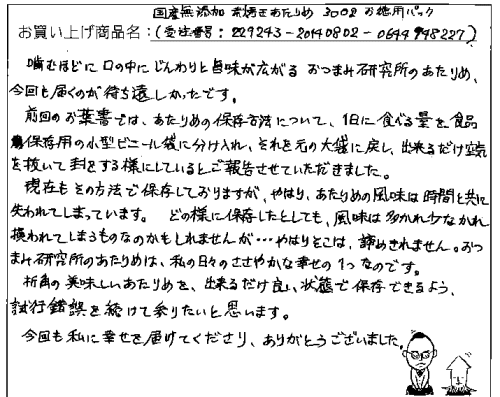 国産無添加 素焼きあたりめ 300g お徳用パック
お買い上げ商品名：(受注番号：229243-20140802-0644948227)
噛むほどに口の中にじんわりと旨味が広がる おつまみ研究所のあたりめ、
今回も届くのが待ち遠しかったです。
前回のお葉書では、あたりめの保存方法について、1日に食べる量を食品
保存用の小型ビニール袋に分け入れ、それを元の大袋に戻し、出来るだけ空気
を抜いて封をする様にしているとご報告させていただきました。
現在もその方法で保存しておりますが、やはり、あたりめの風味は時間と共に
失われてしまっています。 どの様に保存したとしても、風味は多かれ少なかれ
損われてしまうものなのかもしれませんが…やはりそこは、諦めきれません。おつ
まみ研究所のあたりめは、私の日々のささやかな幸せの1つなのです。
折角の美味しいあたりめを、出来るだけ良い状態で保存できるよう、
試行錯誤を続けて参りたいと思います。
今回も私に幸せを届けてくださり、ありがとうございました。